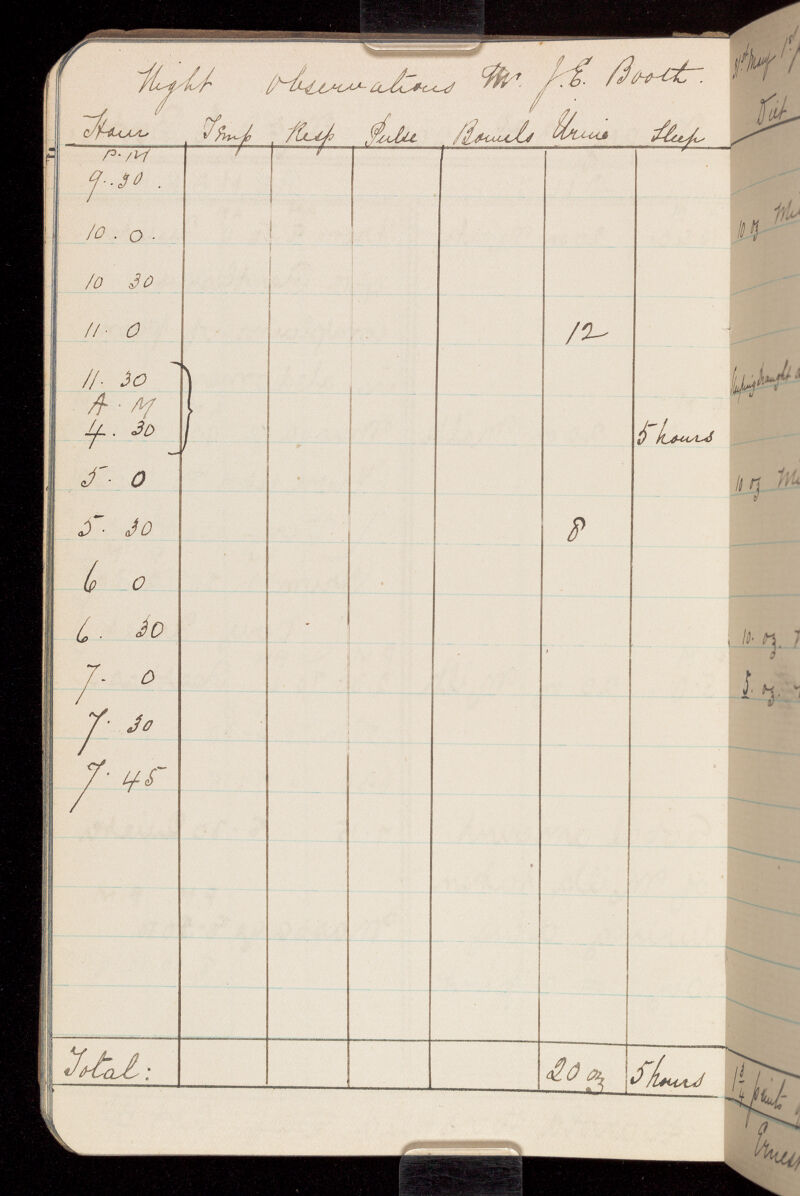 Night Observations Mr. J. E. Booth.
Hour Temp Resp Pulse Bowels Urine Sleep
P.M
9.30.
10.0.
10 30
11.0 12
11.30
A.M
4.30 5 hours
5.0
5.30 8
6 0
6.30
7.0
7.30
7.45
Total: 20 oz 5 hours
31st May
Diet
10 oz
10 oz
10. oz.
5. oz.
1 3/4 pints